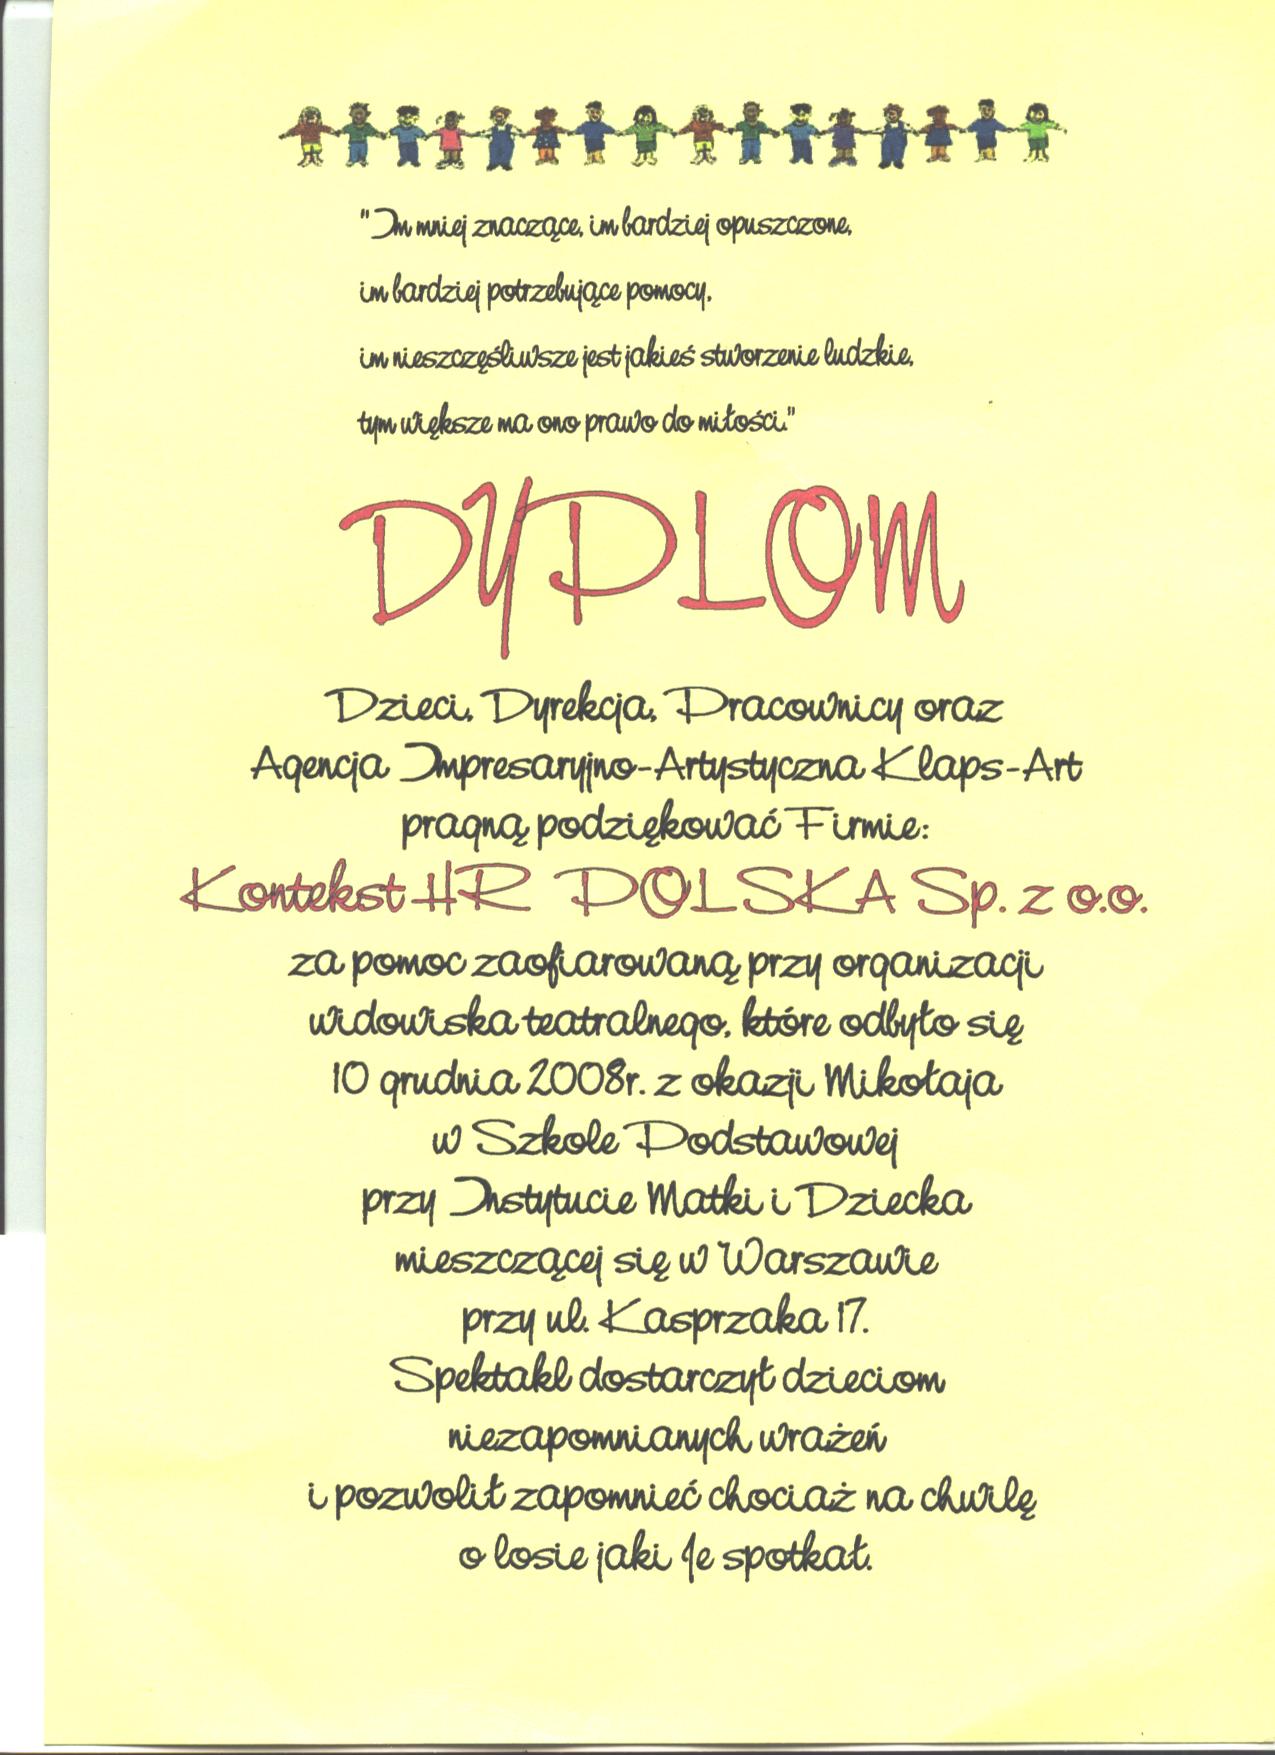 "Im mniej znaczące, im bardziej opuszczone,
im bardziej potrzebujące pomocy,
im nieszczęśliwsze jest jakieś stworzenie ludzkie,
tym większe ma ono prawo do miłości."
DYPLOM
Dzieci, Dyrekcja, Pracownicy oraz
Agencja Impresaryjno-Artystyczna Klaps-Art
pragną podziękować Firmie:
Kontekst HR POLSKA Sp. z o.o.
za pomoc zaofiarowaną przy organizacji
widowiska teatralnego, które odbyło się
10 grudnia 2008r. z okazji Mikołaja
w Szkole Podstawowej
przy Instytucie Matki i Dziecka
mieszczącej się w Warszawie
przy ul. Kasprzaka 17.
Spektakl dostarczył dzieciom
niezapomnianych wrażeń
i pozwolił zapomnieć chociaż na chwilę
o losie jaki Je spotkał.